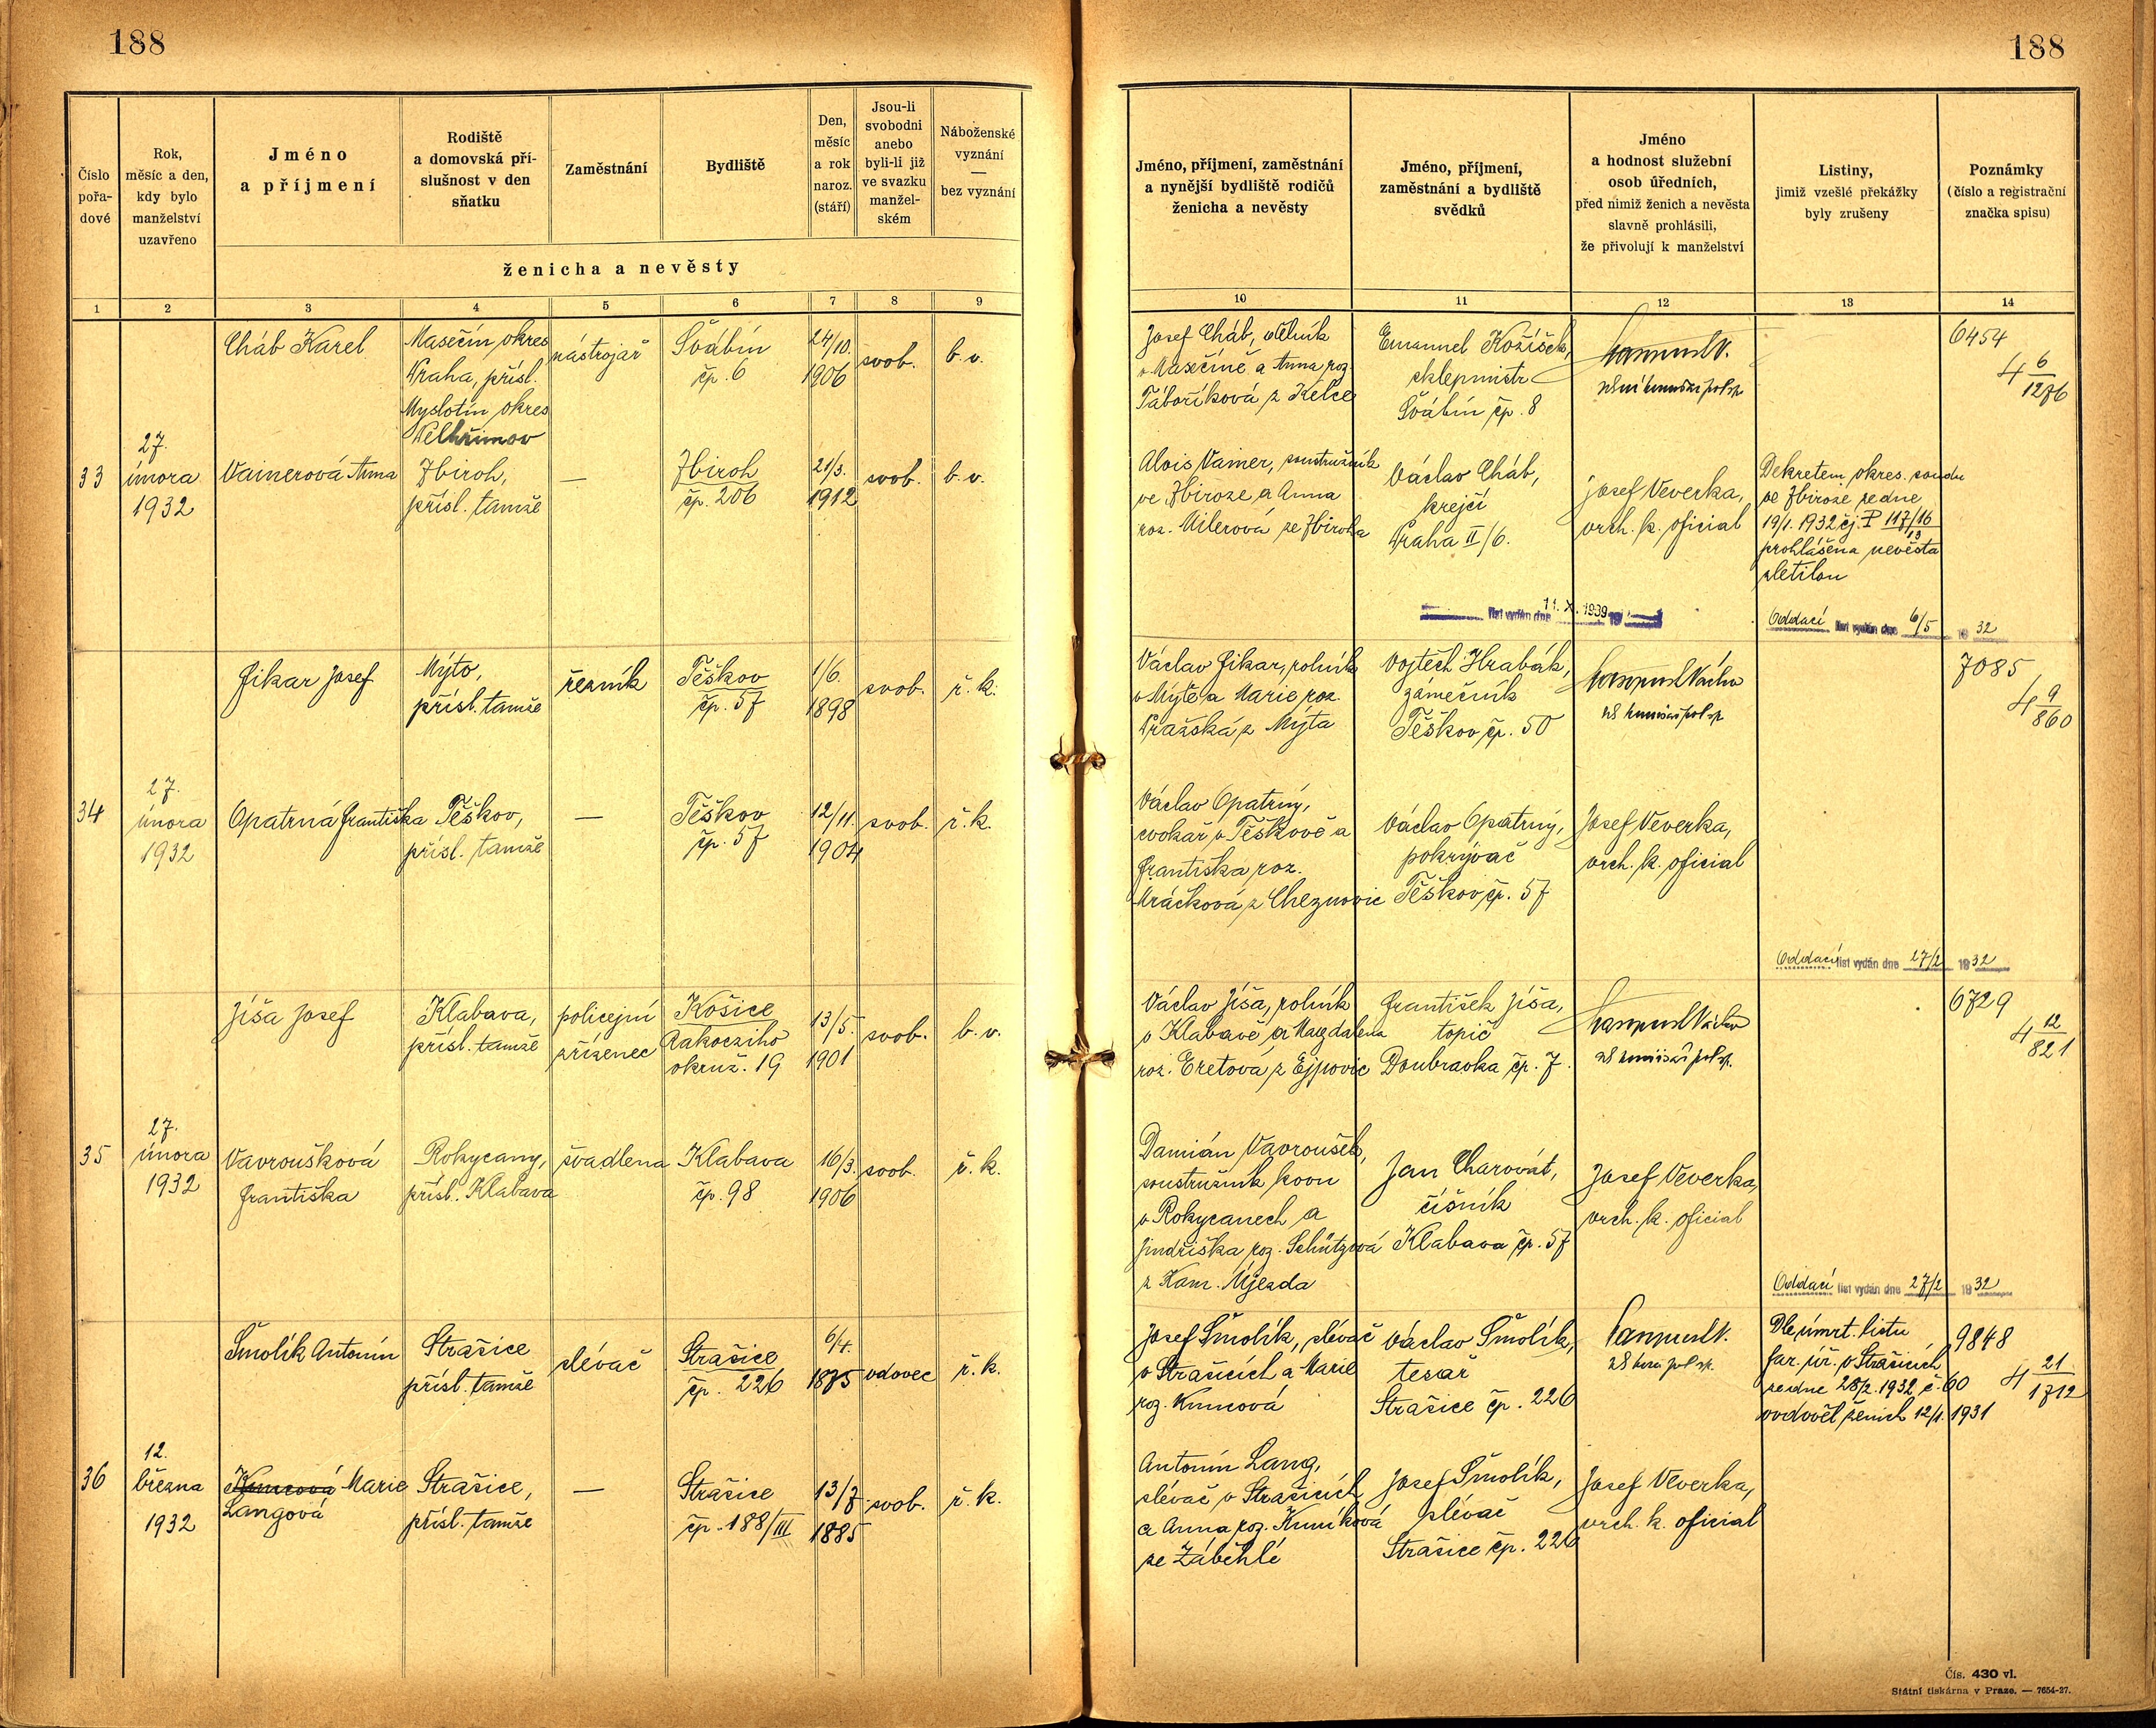 188
188
Číslo
pořa-
dové
Rok,
měsíc a den,
kdy bylo
manželství
uzavřeno
Jméno
a příjmení
Rodiště
a domovská pří-
slušnost v den
sňatku
Zaměstnání
Bydliště
Den,
měsíc
a rok
naroz.
(stáří)
Jsou-li
svobodni
anebo
byli-li již
ve svazku
manžel-
ském
Náboženské
vyznání
—
bez vyznání
ženicha a nevěsty
Jméno, příjmení, zaměstnání
a nynější bydliště rodičů
ženicha a nevěsty
Jméno, příjmení,
zaměstnání a bydliště
svědků
Jméno
a hodnost služební
osob úředních,
před nimiž ženich a nevěsta
slavně prohlásili,
že přivolují k manželství
Listiny,
jimiž vzešlé překážky
byly zrušeny
Poznámky
(číslo a registrační
značka spisu)
1 2 3 4 5 6 7 8 9 10 11 12 13 14
Cháb Karel
Masečín okres
Praha, přísl.
Myslotín okres
Pelhřimov
nástrojař
Švábín
čp. 6
24/10.
1906
svob.
b. v.
Josef Cháb, dělník
v Masečíně a Anna roz.
Táboříková z Kelce
Emanuel Kožíšek,
sklepmistr
Švábín čp. 8
6454
4 6/1276
33
27.
února
1932
Vainerová Anna
Zbiroh,
přísl. tamže
—
Zbiroh
čp. 206
21/3.
1912
svob.
b. v.
Alois Vainer, soustružník
ve Zbiroze a Anna
roz. Milerová ze Zbiroha
Václav Cháb,
krejčí
Praha II/6.
Josef Veverka,
vrch. k. oficial
Dekretem okres. soudu
ve Zbiroze ze dne
19/1. 1932 čj. P 117/16
13
prohlášena nevěsta
zletilou
list vydán dne 11. X. 1939
Oddací list vydán dne 6/5 1932
Fikar Josef
Mýto,
přísl. tamže
řezník
Těškov
čp. 57
1/6.
1898
svob.
ř. k.
Václav Fikar, rolník
v Mýtě a Marie roz.
Pražská z Mýta
Vojtěch Hrabák,
zámečník
Těškov čp. 50
7085
4 9/860
34
27.
února
1932
Opatrná Františka
Těškov,
přísl. tamže
—
Těškov
čp. 57
12/11.
1904
svob.
ř. k.
Václav Opatrný,
cvokař v Těškově a
Františka roz.
Mráčková z Cheznovic
Václav Opatrný,
pokrývač
Těškov čp. 57
Josef Veverka,
vrch. k. oficial
Oddací list vydán dne 27/2 1932
Jíša Josef
Klabava,
přísl. tamže
policejní
zřízenec
Košice
Rakocziho
okruž. 19
13/5.
1901
svob.
b. v.
Václav Jíša, rolník
v Klabavě a Magdalena
roz. Eretová z Ejpovic
František Jíša,
topič
Doubravka čp. 7.
6729
4 12/821
35
27.
února
1932
Vavroušková
Františka
Rokycany,
přísl. Klabava
švadlena
Klabava
čp. 98
16/3.
1906
svob.
ř. k.
Damián Vavroušek,
soustružník kovu
v Rokycanech a
Jindřiška roz. Schützová
z Kam. Újezda
Jan Charovát,
číšník
Klabava čp. 57
Josef Veverka,
vrch. k. oficial
Oddací list vydán dne 27/2 1932
Šmolík Antonín
Strašice
přísl. tamže
slévač
Strašice
čp. 226
6/4.
1875
vdovec
ř. k.
Josef Šmolík, slévač
v Strašicích a Marie
roz. Kuncová
Václav Šmolík,
tesař
Strašice čp. 226
Dle úmrt. listu
far. úř. v Strašicích
ze dne 28/2. 1932 č. 60
ovdověl ženich 12/1. 1931
9848
4 21/1712
36
12.
března
1932
Kuncová Marie
Langová
Strašice,
přísl. tamže
—
Strašice
čp. 188/III
13/7
1885
svob.
ř. k.
Antonín Lang,
slévač v Strašicích
a Anna roz. Kuníková
ze Záběhlé
Josef Šmolík,
slévač
Strašice čp. 226
Josef Veverka,
vrch. k. oficial
Čís. 430 vl.
Státní tiskárna v Praze. — 7654-27.